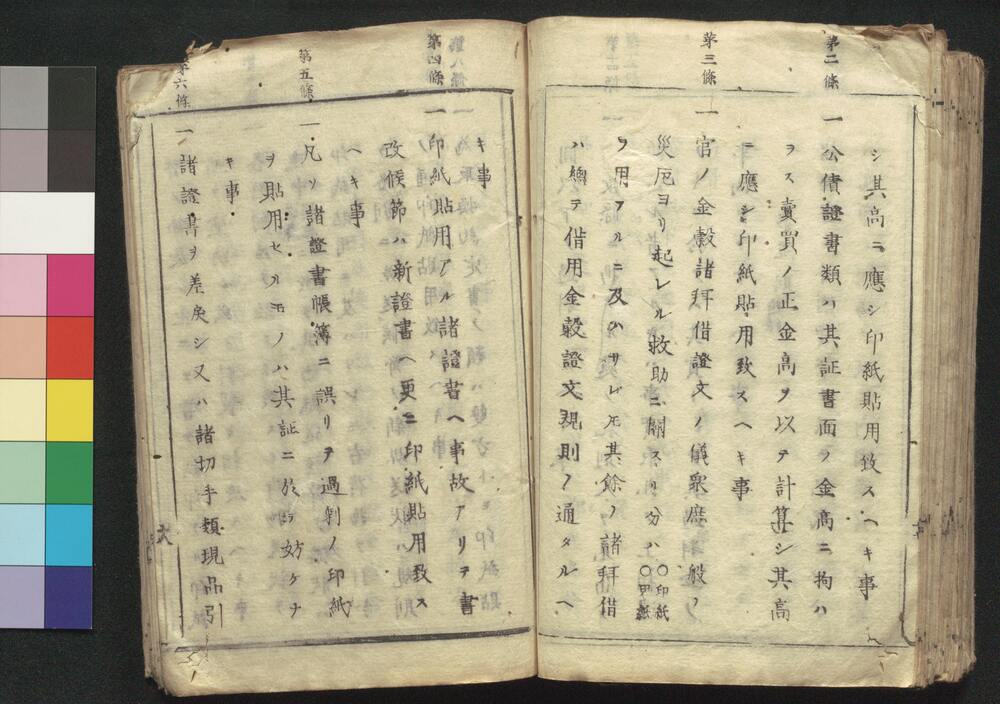 シ其高ニ應シ印紙貼用致スヘキ事
第二條
一公債證書類ハ其証書面ノ金高ニ拘ハ
ラス賣買ノ正金高ヲ以テ計算シ其高
ニ應シ印紙貼用致スヘキ事
第三條
一官ノ金穀諸拜借證文ノ儀衆庶一般ノ
災厄ヨリ起レル救助ニ關スル分ハ○印紙○甲紙
ヲ用フルニ及ハサレ𪜈其餘ノ諸拜借
ハ總テ借用金穀證文規則ノ通タルヘ
キ事
第四條
一印紙貼用アル諸證書ヘ事故アリテ書
改候節ハ新證書ヘ更ニ印紙貼用致ス
ヘキ事
第五條
一凡ソ諸證書帳簿ニ誤リテ過剰ノ印紙
ヲ貼用セルモノハ其証ニ於テ妨ケナ
キ事
第六條
一諸證書ヲ差戻シ又ハ諸切手類現品引
六